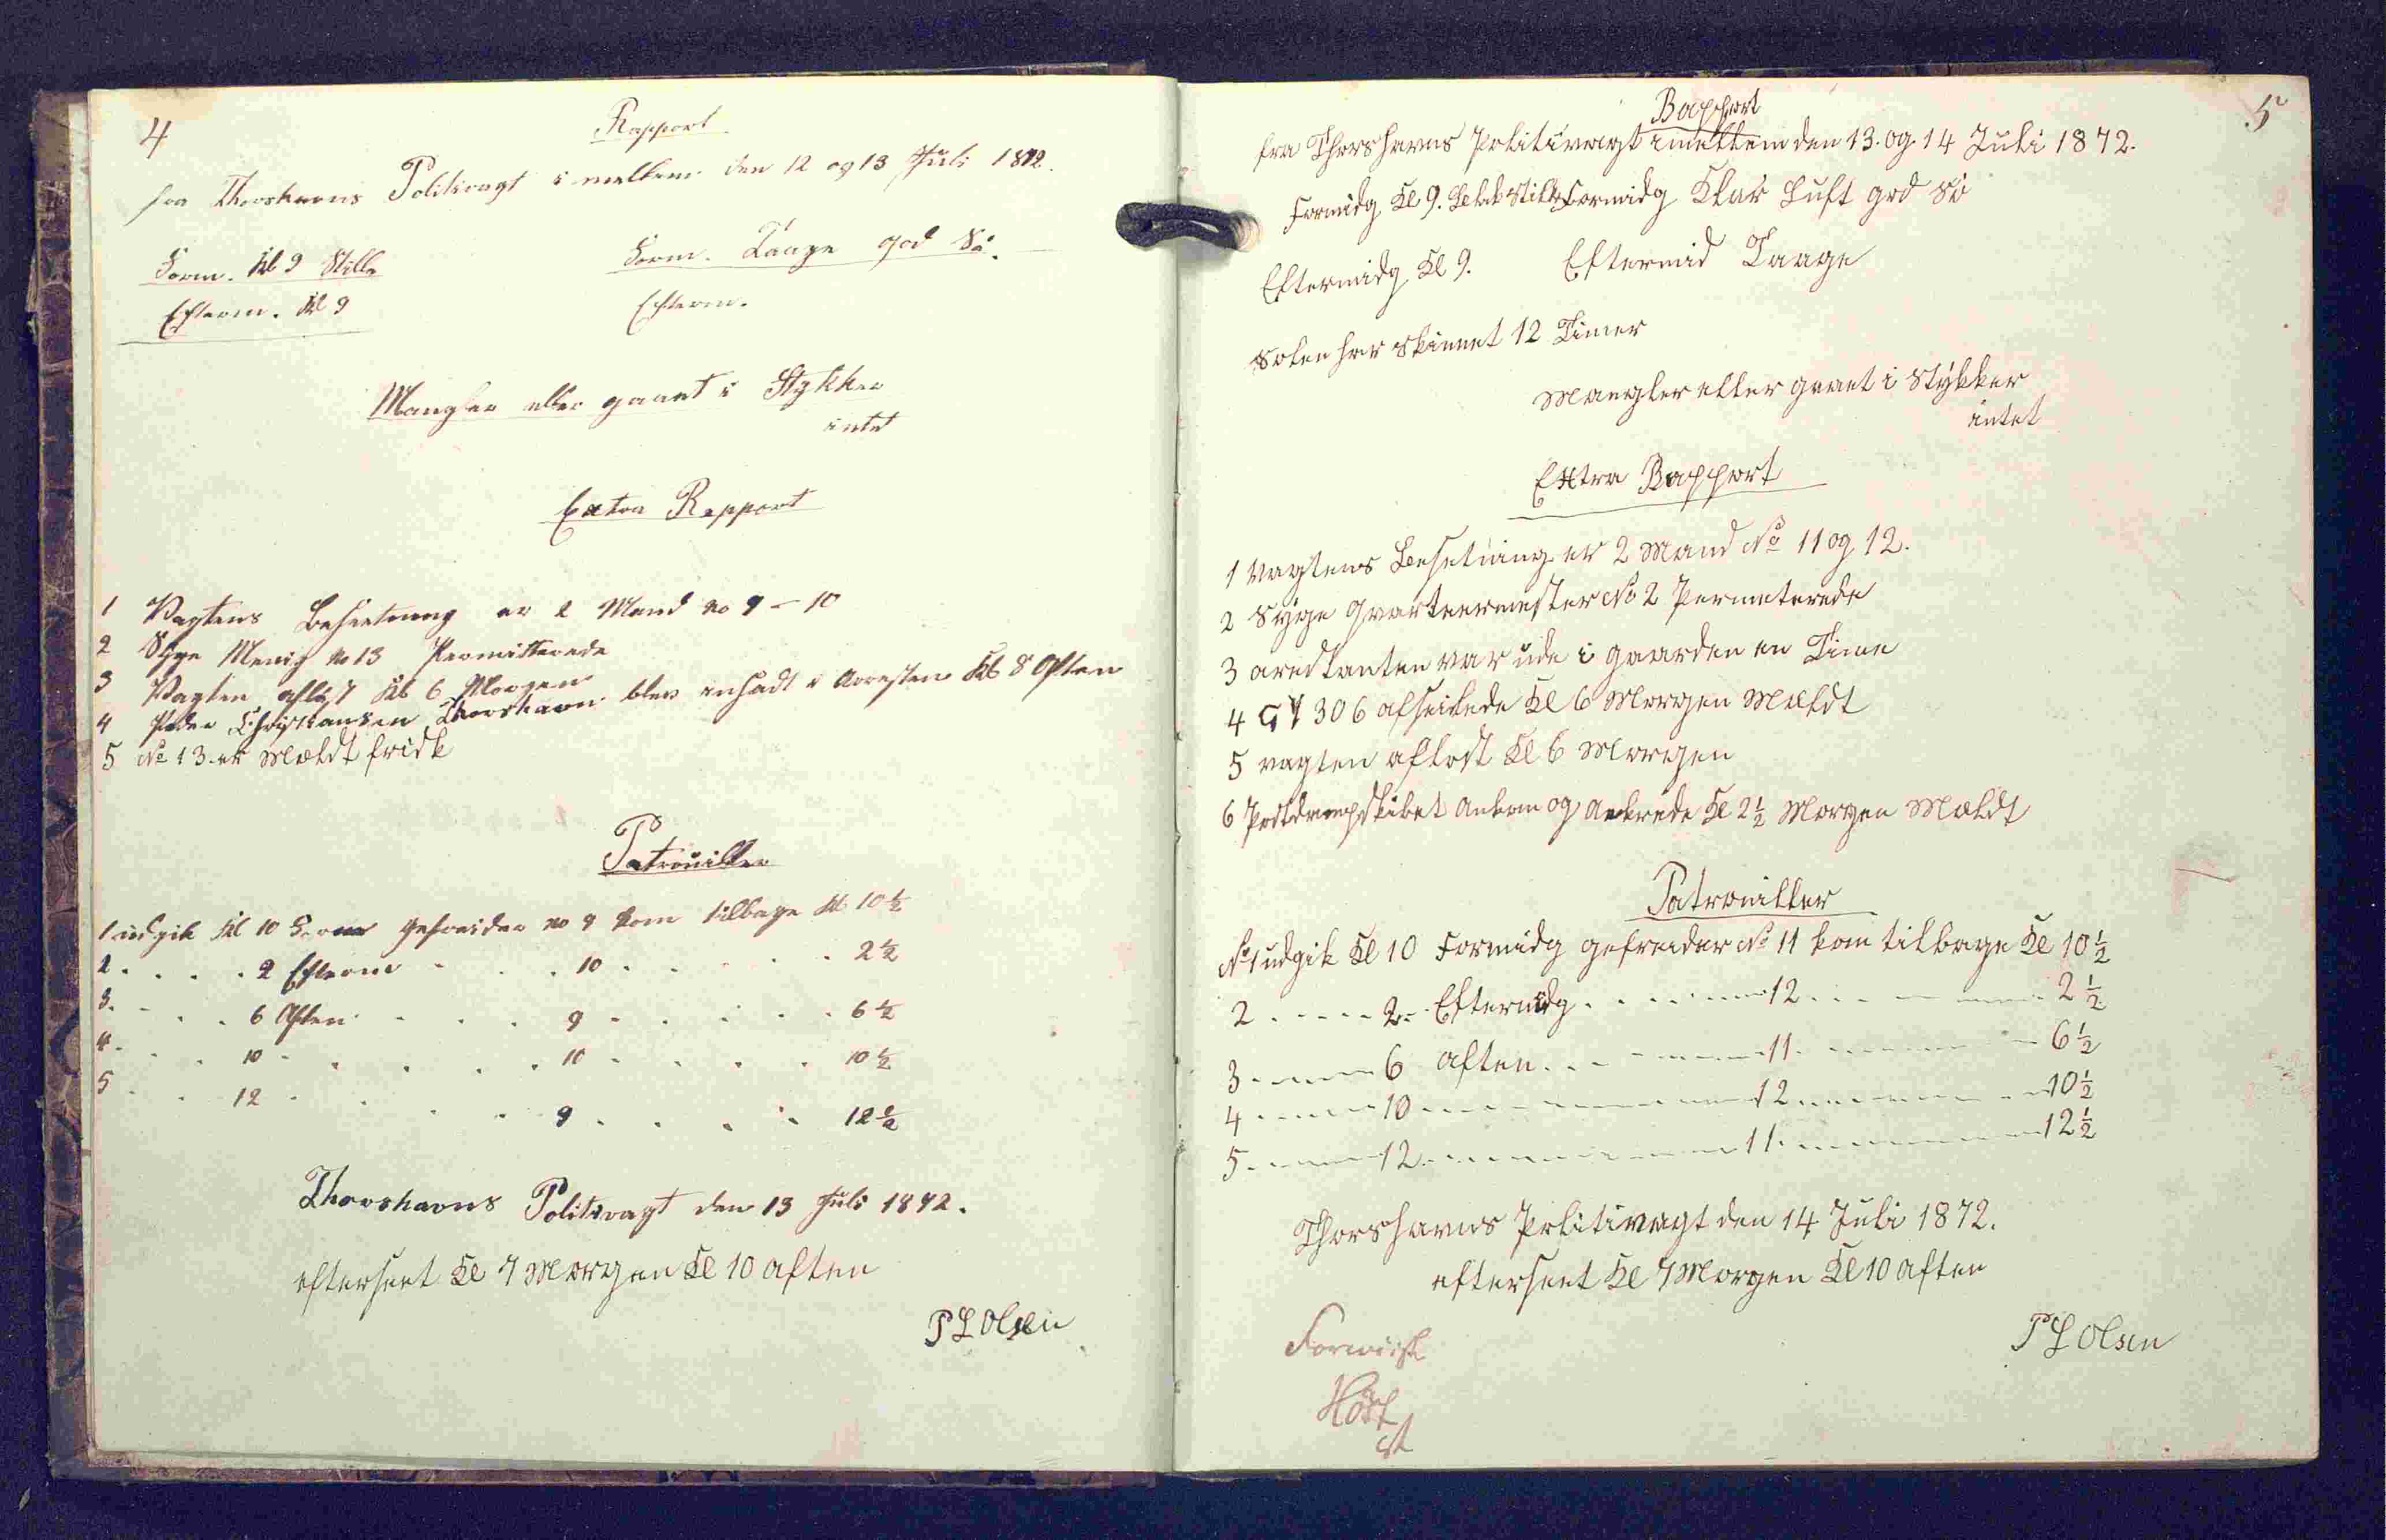 4
Rapport
fra Thorshavns Politivagt i mellem den 12 og 13 Juli 1872.
Form. Kl 9 Stille Form. Taage god Sö.
Efterm. Kl 9 Efterm.
Mangler eller gaaet i Stykker
intet
Extra Rapport
1 Vagtens Besætning er 2 Mand no 9 - 10
2 Syge Menig no 13 Permitterede
3 Vagten aflöst Kl 6 Morgen
4 Peder Christiansen Thorshavn blev insadt i Arresten Kl 8 Aften
5 No 13 er Mældt frisk
Patrouiller
1 udgik Kl 10 Form Gefreider no 9 kom tilbage Kl 10 1/2
2 . . . . 2 Efterm . . . 10 . . . . . 2 1/2
3 . . . . 6 Aften . . . 9 . . . . . 6 1/2
4 . . . 10 . . . . . 10 . . . . 10 1/2
5 . . 12 . . . . . 9 . . . . 12 1/2
Thorshavns Politivagt den 13 Juli 1872.
efterseet Kl 7 Morgen Kl 10 aften
P L Olsen
5
Rapport
fra Thorshavns Politivagt imellem den 13. og 14 Juli 1872.
Formidg Kl 9. Stille Formidg Klar Luft god Sö
Eftermidg Kl 9. Eftermid Taage
Solen har skinnet 12 Timer
Mangler eller gaaet i Stykker
intet
Extra Rapport
1 Vagtens Besetning er 2 Mand No 11 og 12.
2 Syge Qvarteermester No 2 Permeterede
3 arestanten var ude i gaarden en Time
4 306 afseilede Kl 6 Morgen Mældt
5 vagten aflöst Kl 6 Morgen
6 Postdampskibet Ankom og Ankrede Kl 2 1/2 Morgen Mældt
Patrouiller
No 1 udgik Kl 10 Formidg gefreider No 11 kom tilbage Kl 10 1/2
2 . . . . . 2 . . Eftermidg . . . . . 12 . . . . . 2 1/2
3 . . . . . 6 aften . . . . . 11 . . . . . 6 1/2
4 . . . . . 10 . . . . . 12 . . . . . 10 1/2
5 . . . . . 12 . . . . . 11 . . . . . 12 1/2
Thorshavns Politivagt den 14 Juli 1872.
efterseet Kl 7 Morgen Kl 10 aften
P L Olsen
Forevist
Höst